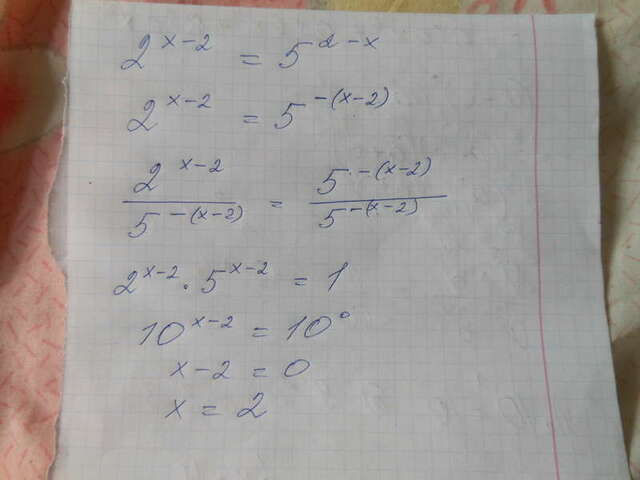 2^{x-2} = 5^{2-x}
2^{x-2} = 5^{-(x-2)}
\frac{2^{x-2}}{5^{-(x-2)}} = \frac{5^{-(x-2)}}{5^{-(x-2)}}
2^{x-2} \cdot 5^{x-2} = 1
10^{x-2} = 10^{0}
x-2 = 0
x = 2